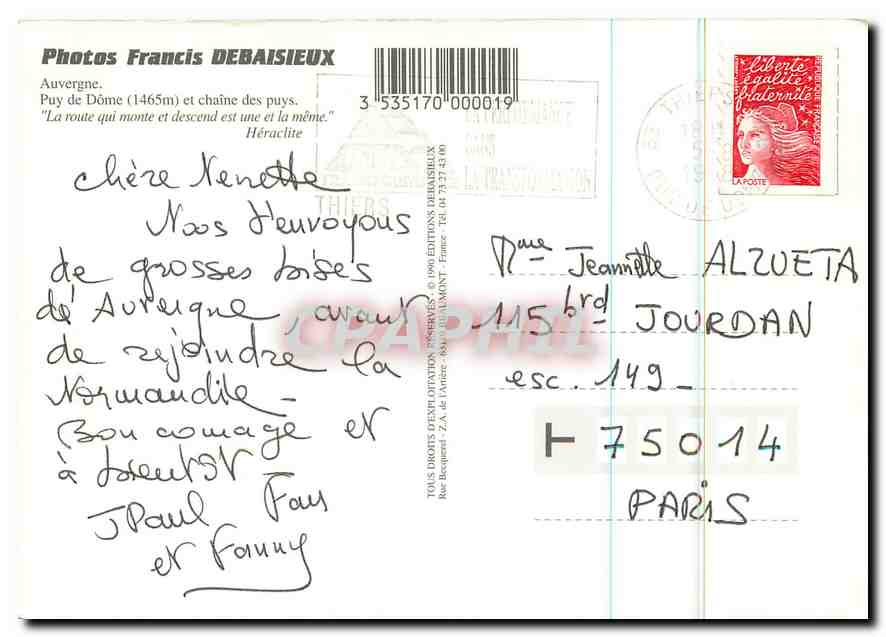 Photos Francis DEBAISIEUX
Auvergne.
Puy de Dôme (1465m) et chaîne des puys.
"La route qui monte et descend est une et la même."
Héraclite
3 535170 000019
chère Nenette
Nous t'envoyons
de grosses bises
de Auvergne, avant
de rejoindre la
Normandie -
Bon courage et
à bientôt
JPaul Fan
et Fanny
TOUS DROITS D'EXPLOITATION RÉSERVÉS - © 1990 ÉDITIONS DEBAISIEUX
Rue Becquerel - Z.A. de l'Artière - 63110 BEAUMONT - France - Tél. 04 73 27 43 00
THIERS
LA POSTE
liberté
égalité
fraternité
REPUBLIQUE FRANÇAISE
Mme Jeannette ALZUETA
115 brd JOURDAN
esc. 149 -
75014
PARIS
CPAPHIL